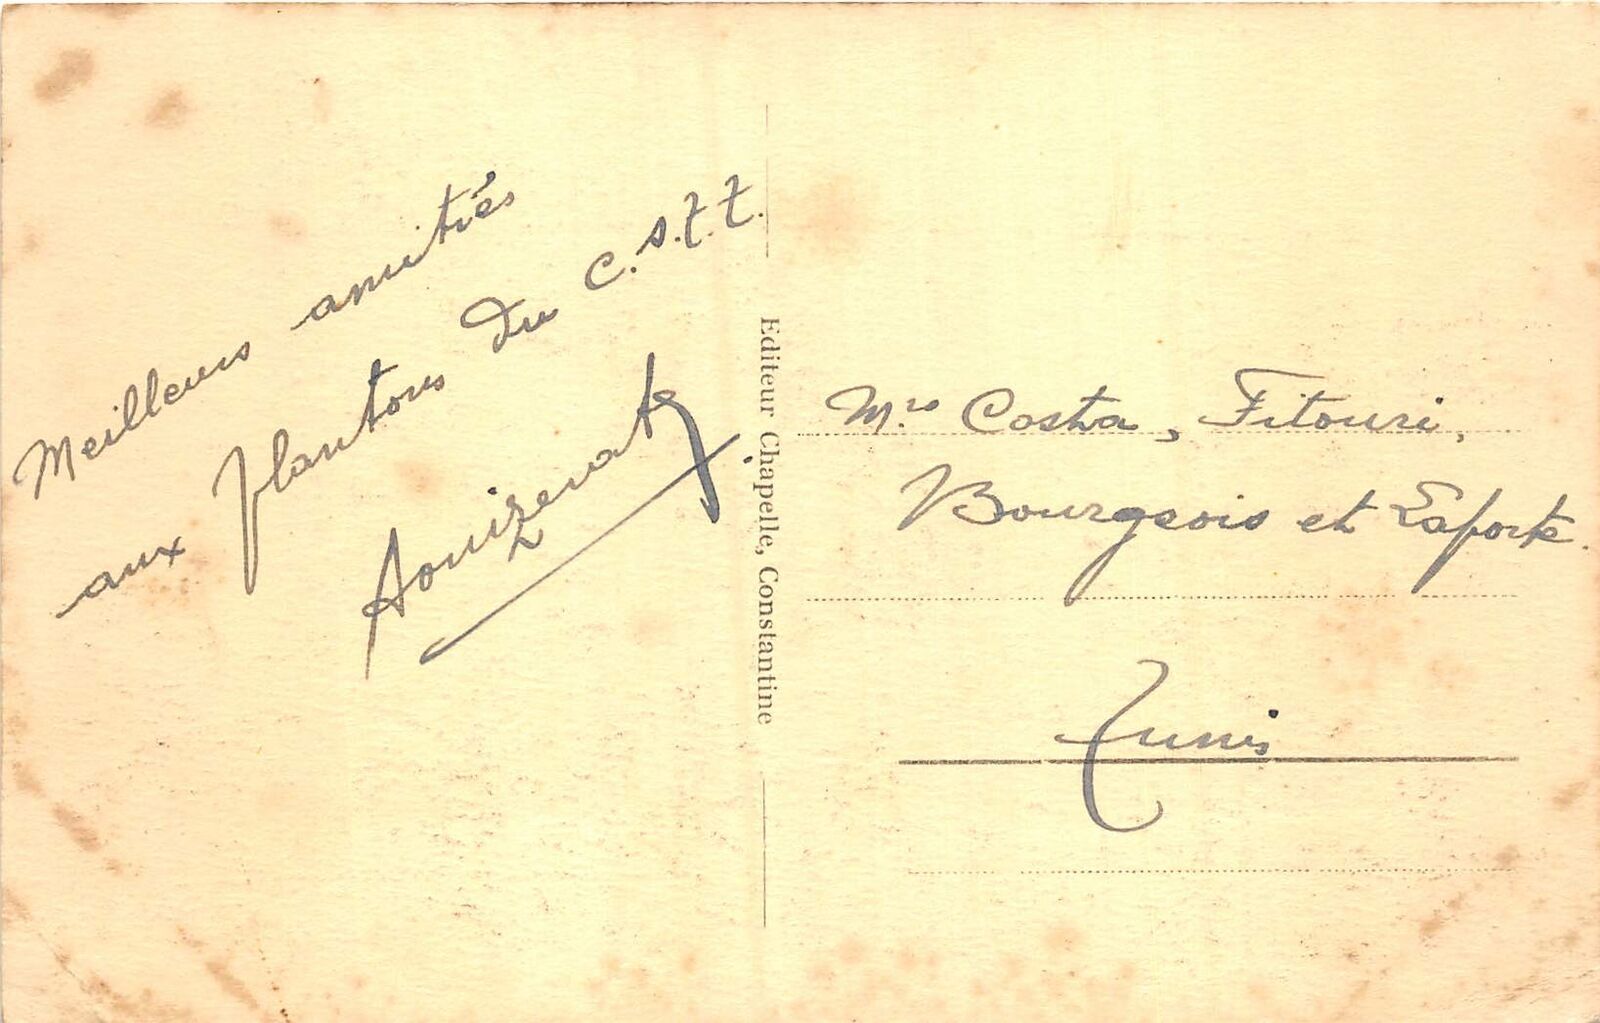 Meilleurs amitiés
aux plantons du C.S.T.T.
Aouizerate
Editeur Chapelle, Constantine
Mrs Costa, Fitouri,
Bourgeois et Laporte.
Tunis